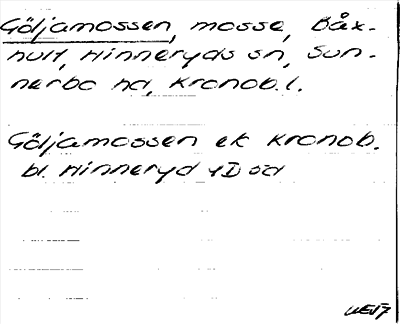 Göljamossen, mosse, Båx-
hult, Hinneryds sn, Sun-
nerbo hd, Kronob. l.
Göljamossen ek Kronob.
bl. Hinneryd 4D od